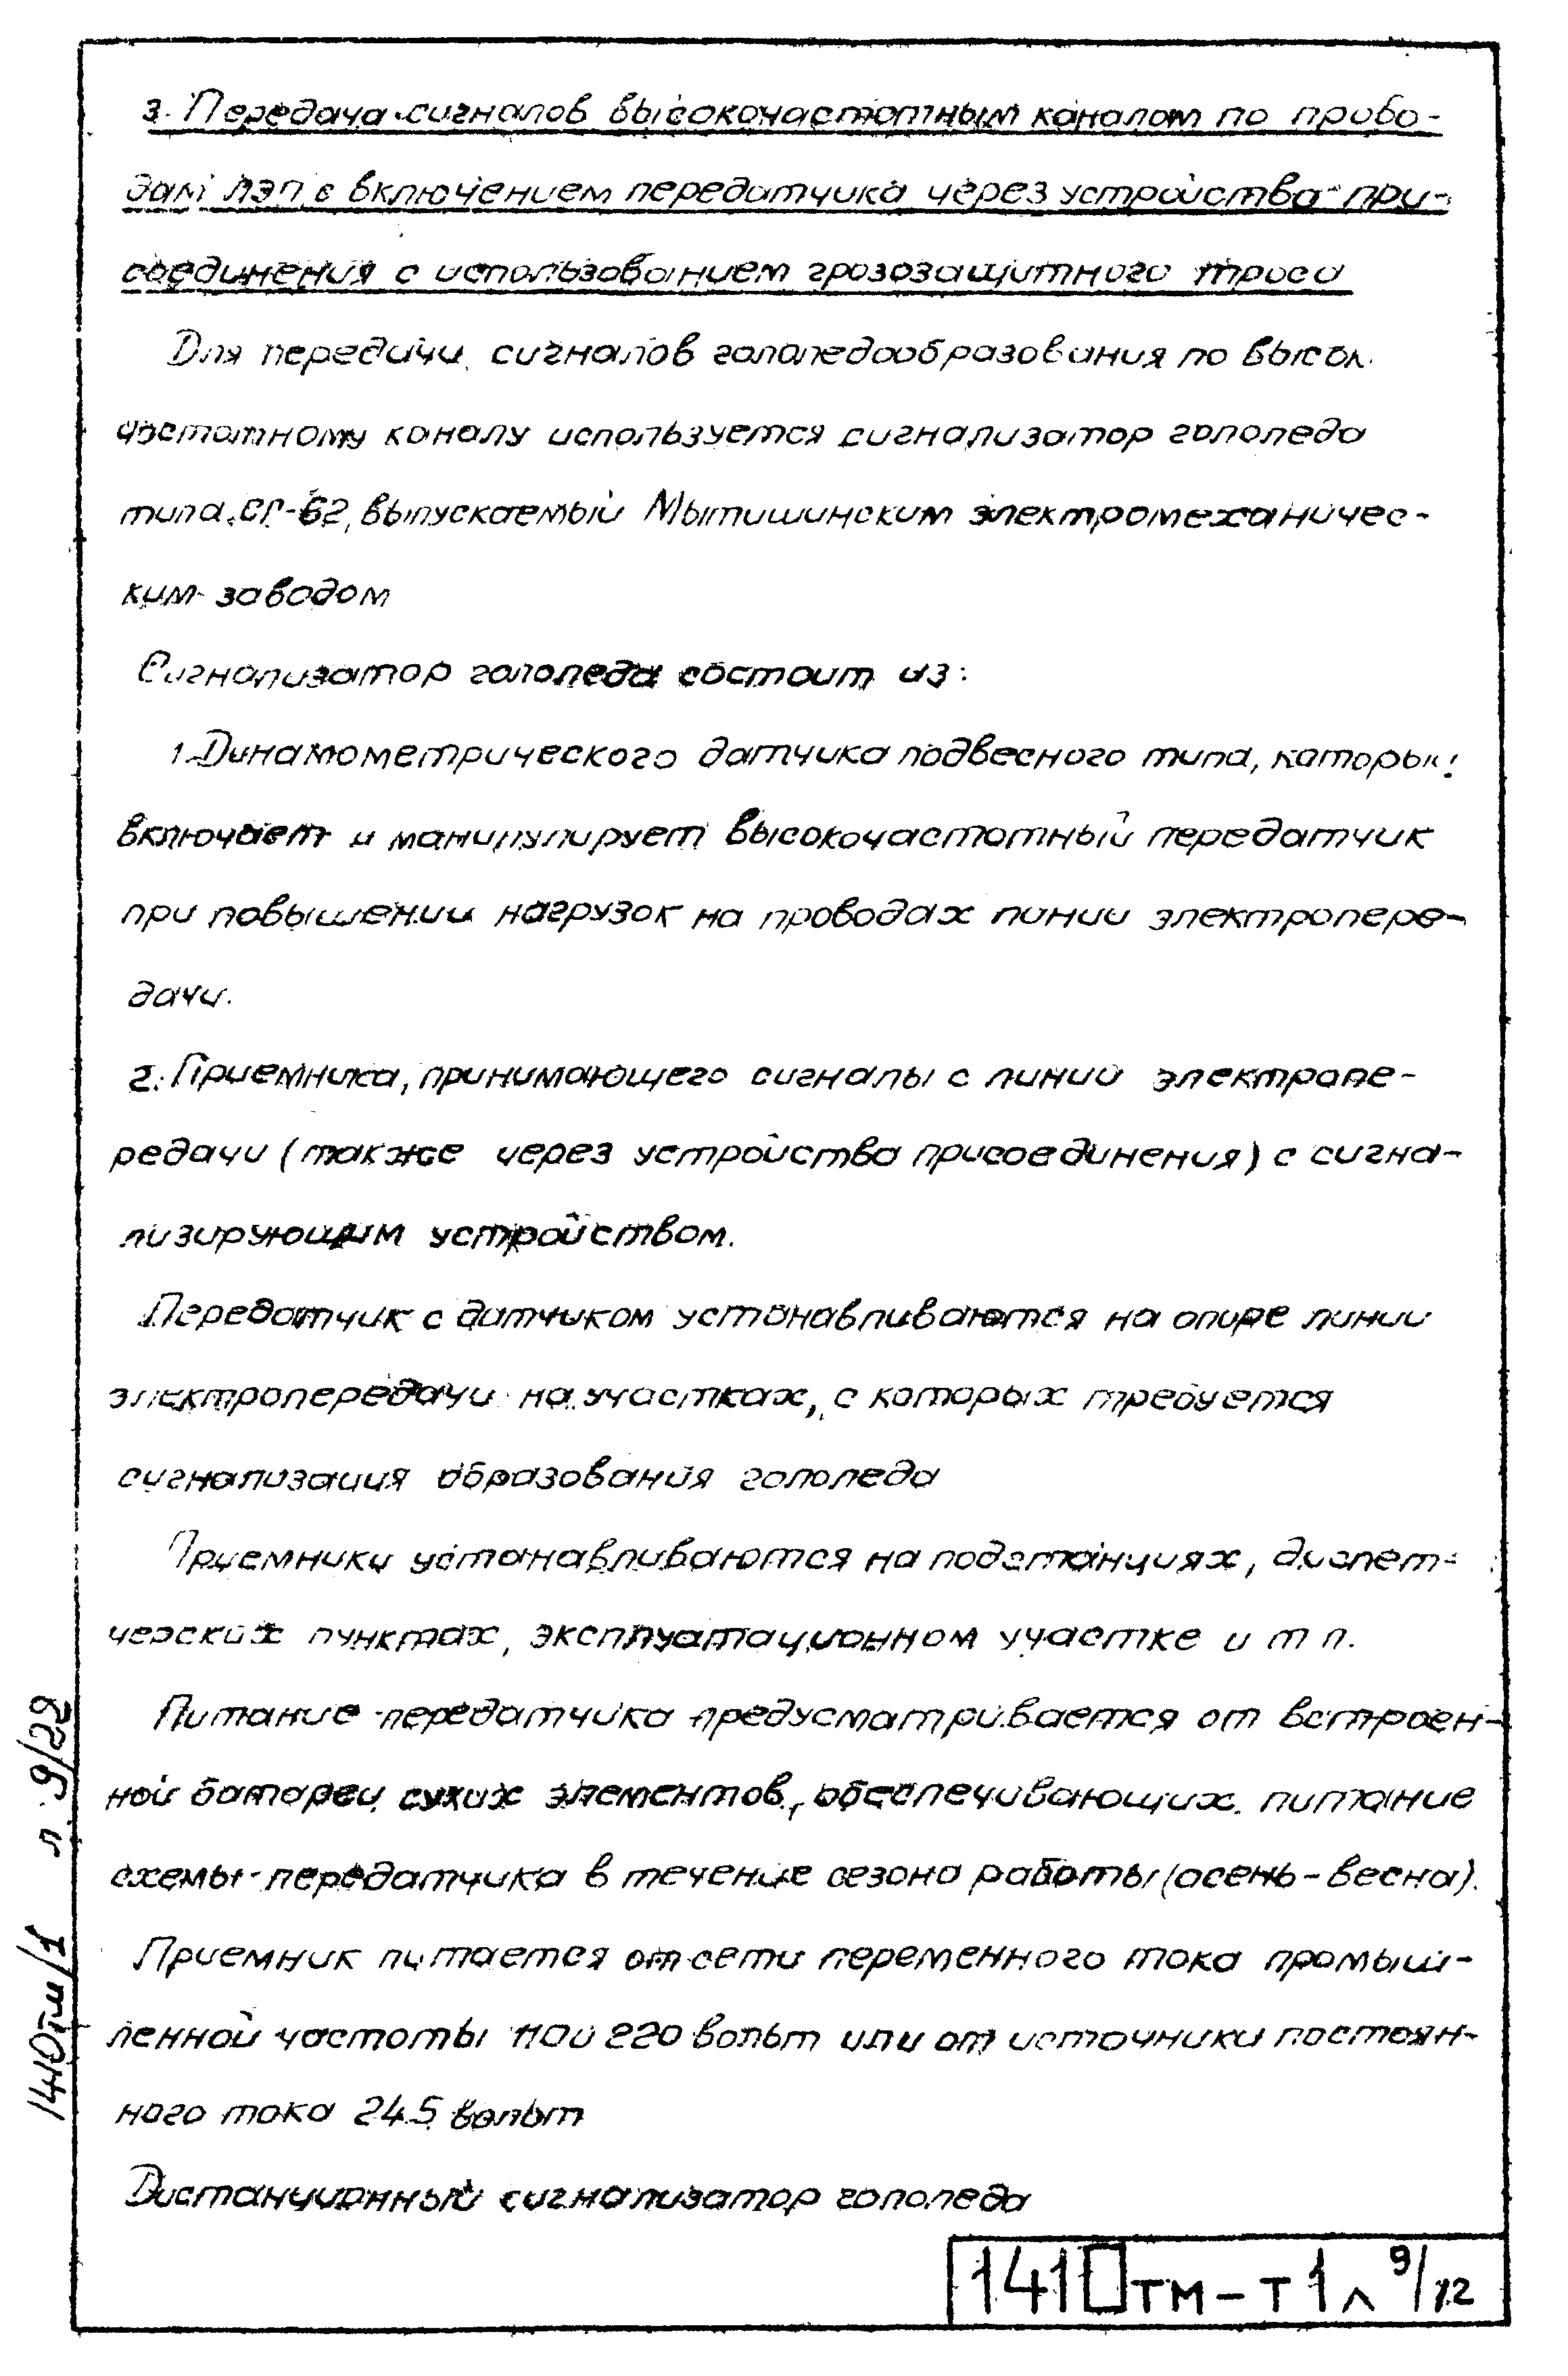 3. Передача сигналов высокочастотным каналом по прово-
дам ЛЭП с включением передатчика через устройства при-
соединения с использованием грозозащитного троса
Для передачи сигналов гололедообразования по высок
частотному каналу используется сигнализатор гололеда
типа СГ-62, выпускаемый Мытишинским электромеханичес-
ким заводом
Сигнализатор гололеда состоит из:
1. Динамометрического датчика подвесного типа, который
включает и манипулирует высокочастотный передатчик
при повышении нагрузок на проводах линии электропере-
дачи.
2. Приемника, принимающего сигналы с линии электропе-
редачи (также через устройства присоединения) с сигна-
лизирующим устройством.
Передатчик с датчиком устанавливаются на опоре линии
электропередачи на участках, с которых требуется
сигнализация образования гололеда
Приемники устанавливаются на подстанциях, диспет-
черских пунктах, эксплуатационном участке и т п.
Питание передатчика предусматривается от встроен-
ной батареи сухих элементов, обеспечивающих питание
схемы передатчика в течение сезона работы (осень-весна).
Приемник питается от сети переменного тока промыш-
ленной частоты 220 вольт или от источники постоян-
ного тока 24.5 вольт
Дистанционный сигнализатор гололеда
1410тм-т1 л 9/12
1410тм/1 л. 9/22